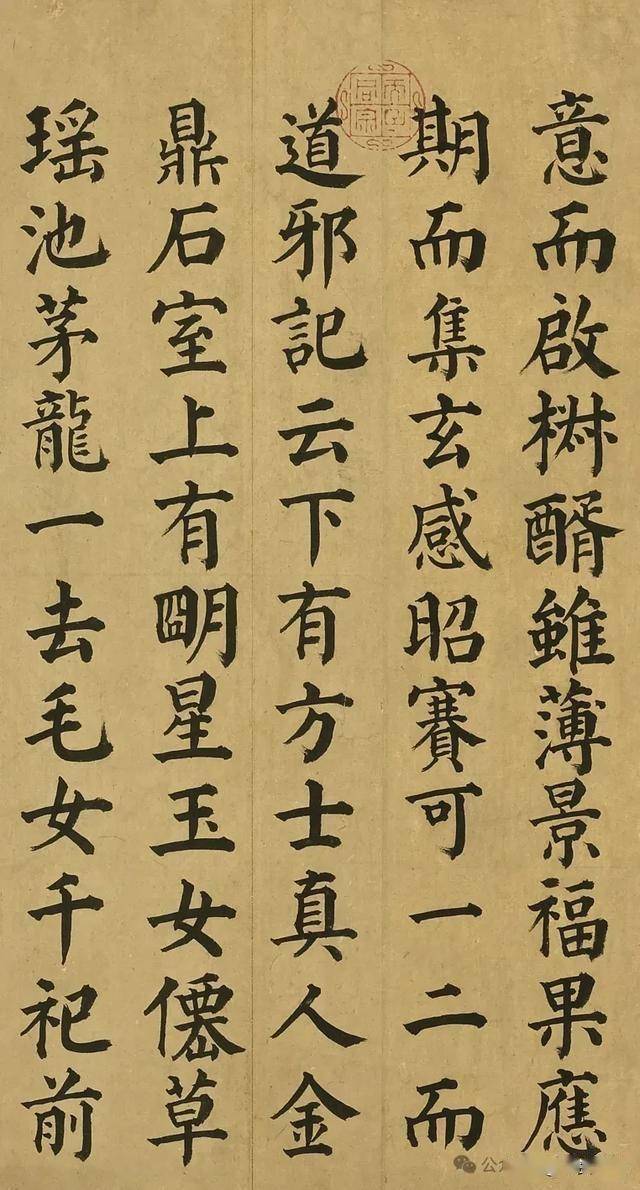 意而啟椒醑雖薄景福果應
期而集玄感昭賽可一二而
道邪記云下有方士真人金
鼎石室上有朙星玉女僊草
瑶池茅龍一去毛女千祀前
公